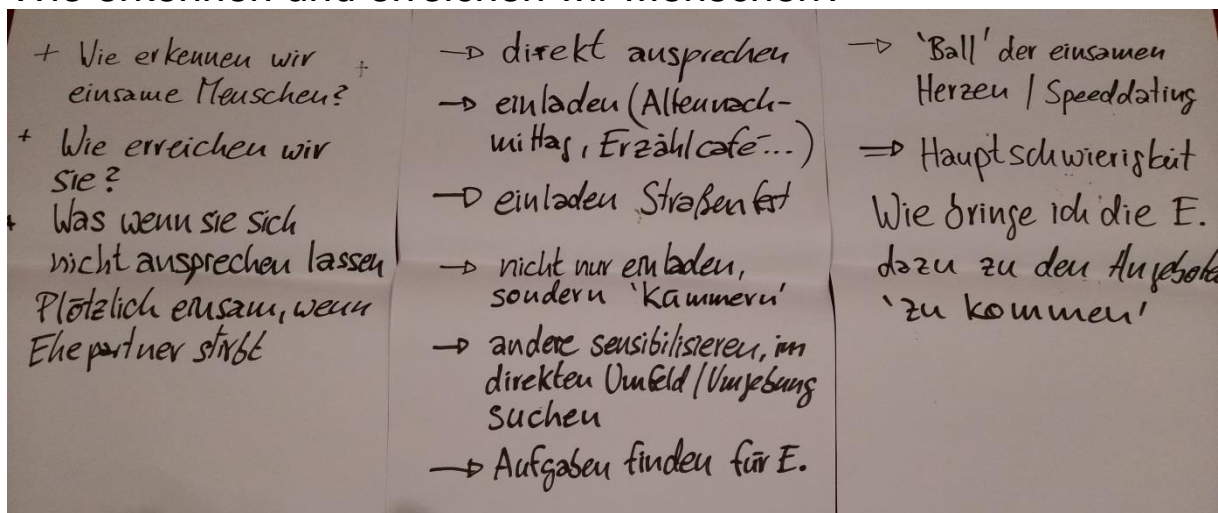 Wie erkennen und erreichen wir Menschen?
+ Wie erkennen wir +
einsame Menschen?
+ Wie erreichen wir
sie?
+ Was wenn sie sich
nicht ansprechen lassen
Plötzlich einsam, wenn
Ehepartner stirbt
→ direkt ansprechen
→ einladen (Altennach-
mittag, Erzählcafé...)
→ einladen Straßenfest
→ nicht nur einladen,
sondern 'Kümmern'
→ andere sensibilisieren, im
direkten Umfeld/Umgebung
suchen
→ Aufgaben finden für E.
→ 'Ball' der einsamen
Herzen / Speeddating
⇒ Hauptschwierigkeit
Wie bringe ich die E.
dazu zu den Angeboten
'zu kommen'